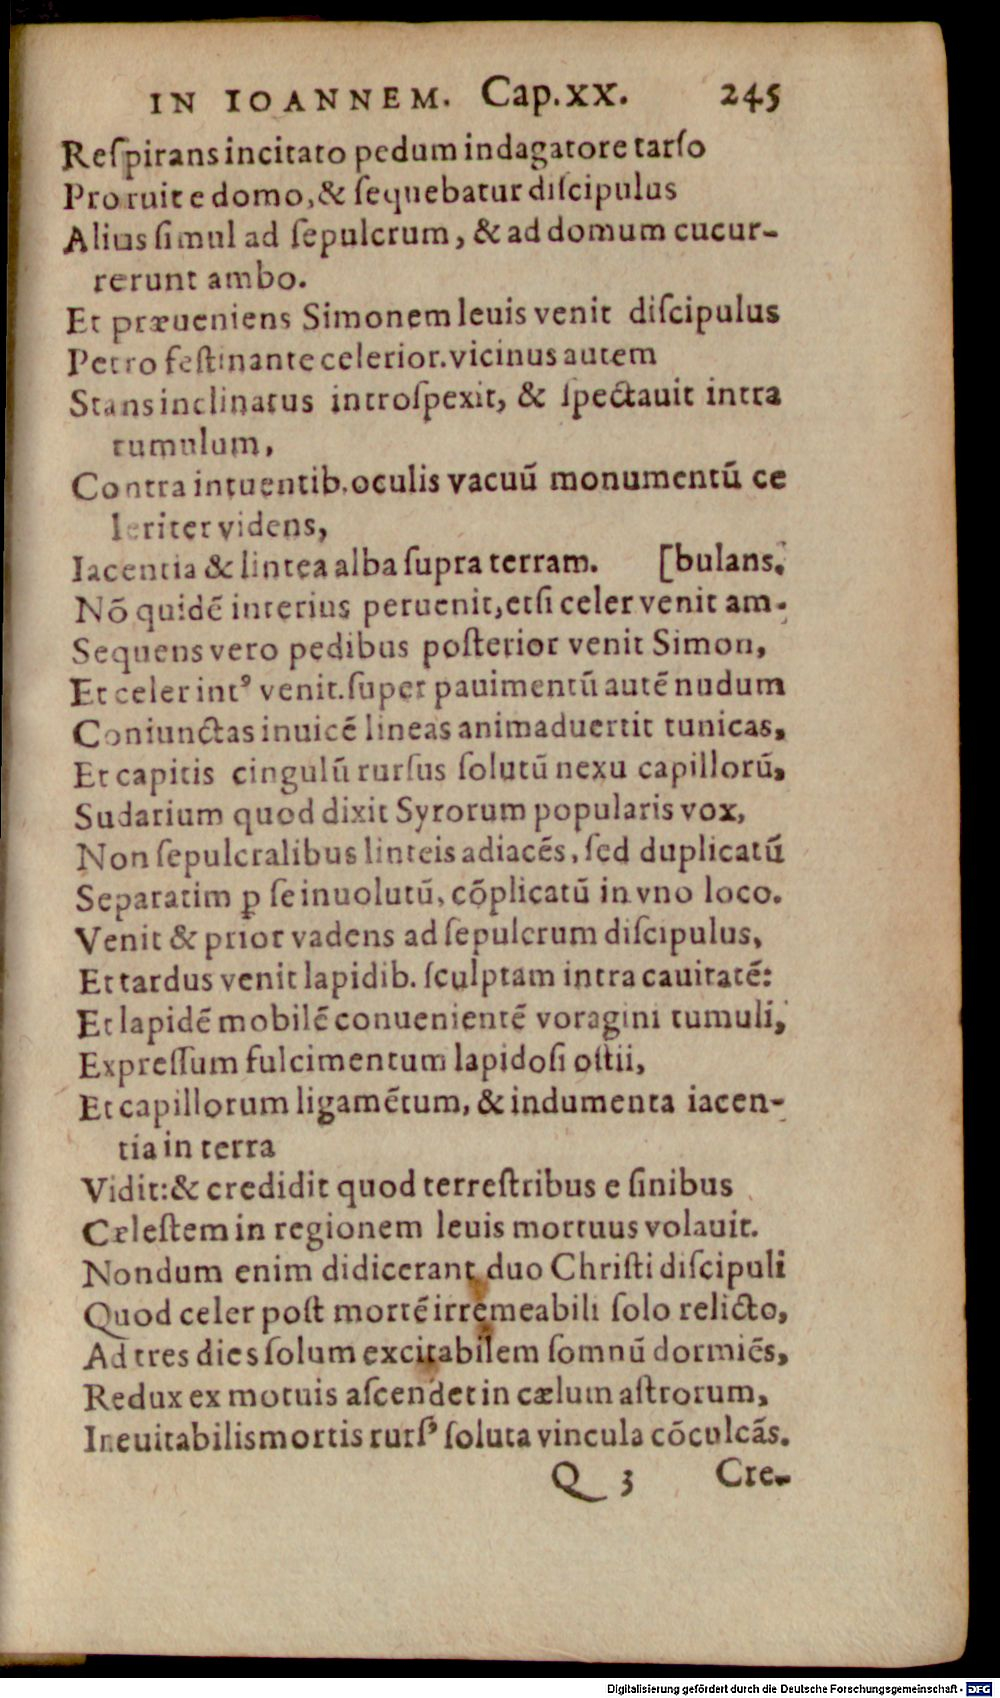 IN IOANNEM. Cap.xx. 245
Reſpirans incitato pedum indagatore tarſo
Proruit e domo, & ſequebatur diſcipulus
Alius ſimul ad ſepulcrum, & ad domum cucur-
rerunt ambo.
Et præueniens Simonem leuis venit diſcipulus
Petro feſtinante celerior. vicinus autem
Stans inclinatus introſpexit, & ſpectauit intra
tumulum,
Contra intuentib. oculis vacuũ monumentũ ce
leriter videns,
Iacentia & lintea alba ſupra terram. [bulans.
Nõ quidẽ interius peruenit, etſi celer venit am-
Sequens vero pedibus poſterior venit Simon,
Et celer intꝰ venit. ſuper pauimentũ autẽ nudum
Coniunctas inuicẽ lineas animaduertit tunicas,
Et capitis cingulũ rurſus ſolutũ nexu capillorũ,
Sudarium quod dixit Syrorum popularis vox,
Non ſepulcralibus linteis adiacẽs, ſed duplicatũ
Separatim ꝑ ſe inuolutũ, cõplicatũ in vno loco.
Venit & prior vadens ad ſepulcrum diſcipulus,
Et tardus venit lapidib. ſculptam intra cauitatẽ:
Et lapidẽ mobilẽ conuenientẽ voragini tumuli,
Expreſſum fulcimentum lapidoſi oſtii,
Et capillorum ligamẽtum, & indumenta iacen-
tia in terra
Vidit: & credidit quod terreſtribus e ſinibus
Cæleſtem in regionem leuis mortuus volauit.
Nondum enim didicerant duo Chriſti diſcipuli
Quod celer poſt mortẽ irremeabili ſolo relicto,
Ad tres dies ſolum excitabilem ſomnũ dormiẽs,
Redux ex motuis aſcendet in cælum aſtrorum,
Ineuitabilis mortis rurſꝰ ſoluta vincula cõculcãs.
Q 3 Cre-
Digitalisierung gefördert durch die Deutsche Forschungsgemeinschaft - DFG